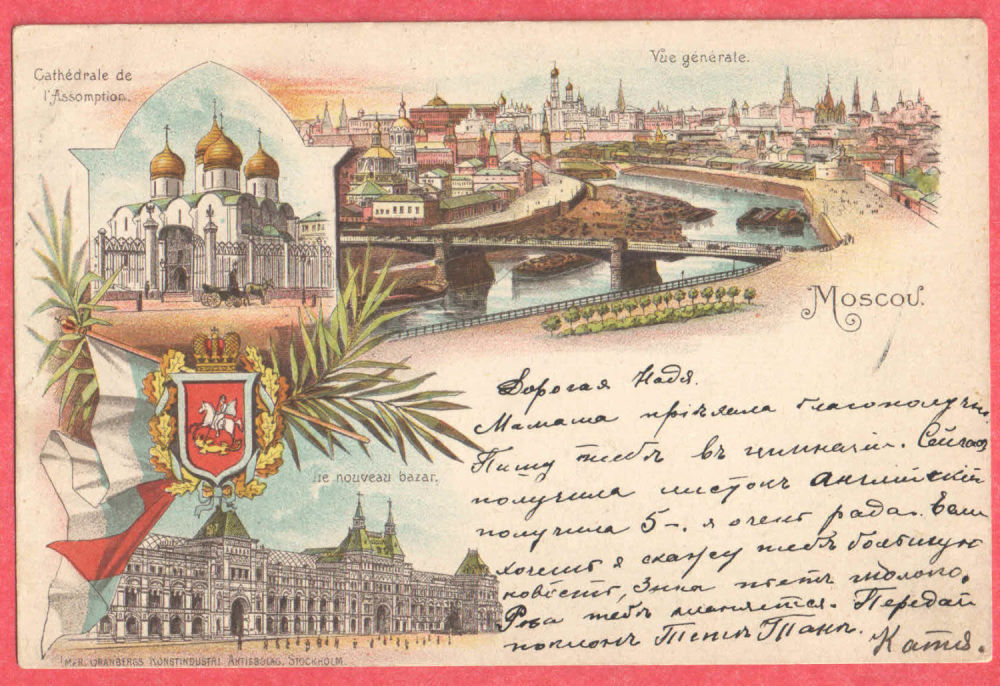 Cathédrale de
l'Assomption.
Vue générale.
Moscou.
Le nouveau bazar.
Дорогая Надя.
Мамаша пріѣхала благополучно.
Пишу тебѣ въ гимназіи. Сейчасъ
получила листокъ Англійскій
получила 5-. я очень рада. Если
хочешь я скажу тебѣ большую
новость, Зина пьетъ молоко.
тебѣ кланяется. Передай
поклонъ Тетѣ Танѣ.
Катя.
IMPR. GRANBERGS KONSTINDUSTRI AKTIEBOLAG, STOCKHOLM.